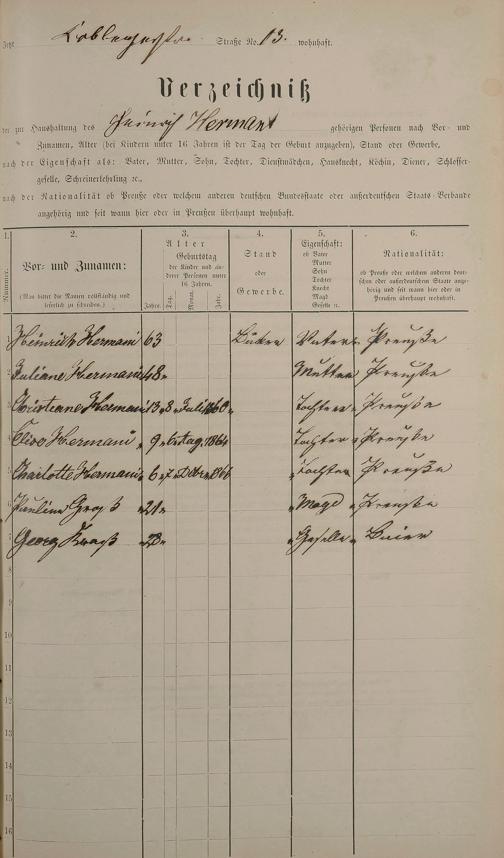 Jetzt Coblenzerstr. Straße No. 13. wohnhaft.
Verzeichniß
der zur Haushaltung des Heinrich Hermani gehörigen Personen nach Vor- und
Zunamen, Alter (bei Kindern unter 16 Jahren ist der Tag der Geburt anzugeben), Stand oder Gewerbe,
nach der Eigenschaft als: Vater, Mutter, Sohn, Tochter, Dienstmädchen, Hausknecht, Köchin, Diener, Schlosser-
geselle, Schreinerlehrling ꝛc.,
nach der Nationalität ob Preuße oder welchem anderen deutschen Bundesstaate oder außerdeutschen Staats-Verbande
angehörig und seit wann hier oder in Preußen überhaupt wohnhaft.
1. 2. 3. 4. 5. 6.
Nummer.
Vor- und Zunamen:
(Man bittet die Namen vollständig und
leserlich zu schreiben.)
Alter
Geburtstag
der Kinder und an-
derer Personen unter
16 Jahren.
Jahre. Tag. Monat. Jahr.
Stand
oder
Gewerbe.
Eigenschaft:
ob Vater
Mutter
Sohn
Tochter
Knecht
Magd
Geselle ꝛc.
Nationalität:
ob Preuße oder welchem anderen deut-
schen oder außerdeutschen Staate ange-
hörig und seit wann hier oder in
Preußen überhaupt wohnhaft.
1 Heinrich Hermani 63 Vater Preuße
2 Juliane Hermani 48 Mutter Preuße
3 Christienne Hermani 13 8 Juli 1860 Tochter Preuße
4 Hermani 9 1864 Tochter Preuße
5 Charlotte Hermani 6 7 1866 Tochter Preuße
6 Pauline Groß 21 Magd Preuße
7 Georg 23 Geselle Baier
8
9
10
11
12
13
14
15
16